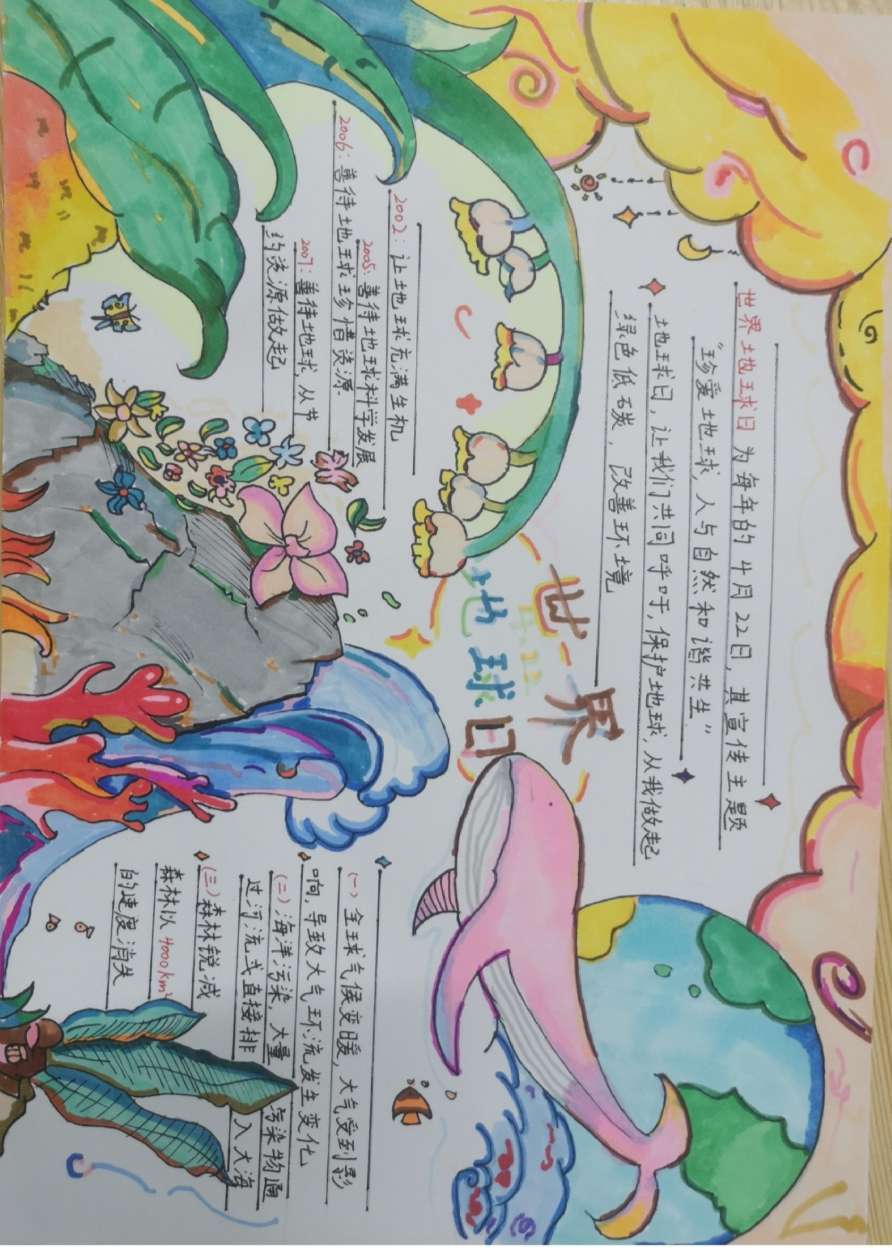 世界地球日
4.22
世界地球日为每年的4月22日，其宣传主题
"珍爱地球，人与自然和谐共生"
地球日，让我们共同呼吁，保护地球，从我做起
绿色低碳，改善环境
2002：让地球充满生机
2005：善待地球科学发展
2006：善待地球珍惜资源.
2007：善待地球，从节
约资源做起
(一)全球气候变暖，大气受到影
响，导致大气环流发生变化
(二)海洋污染，大量污染物通
过河流或直接排入大海
(三)森林锐减
森林以4000km²
的速度消失